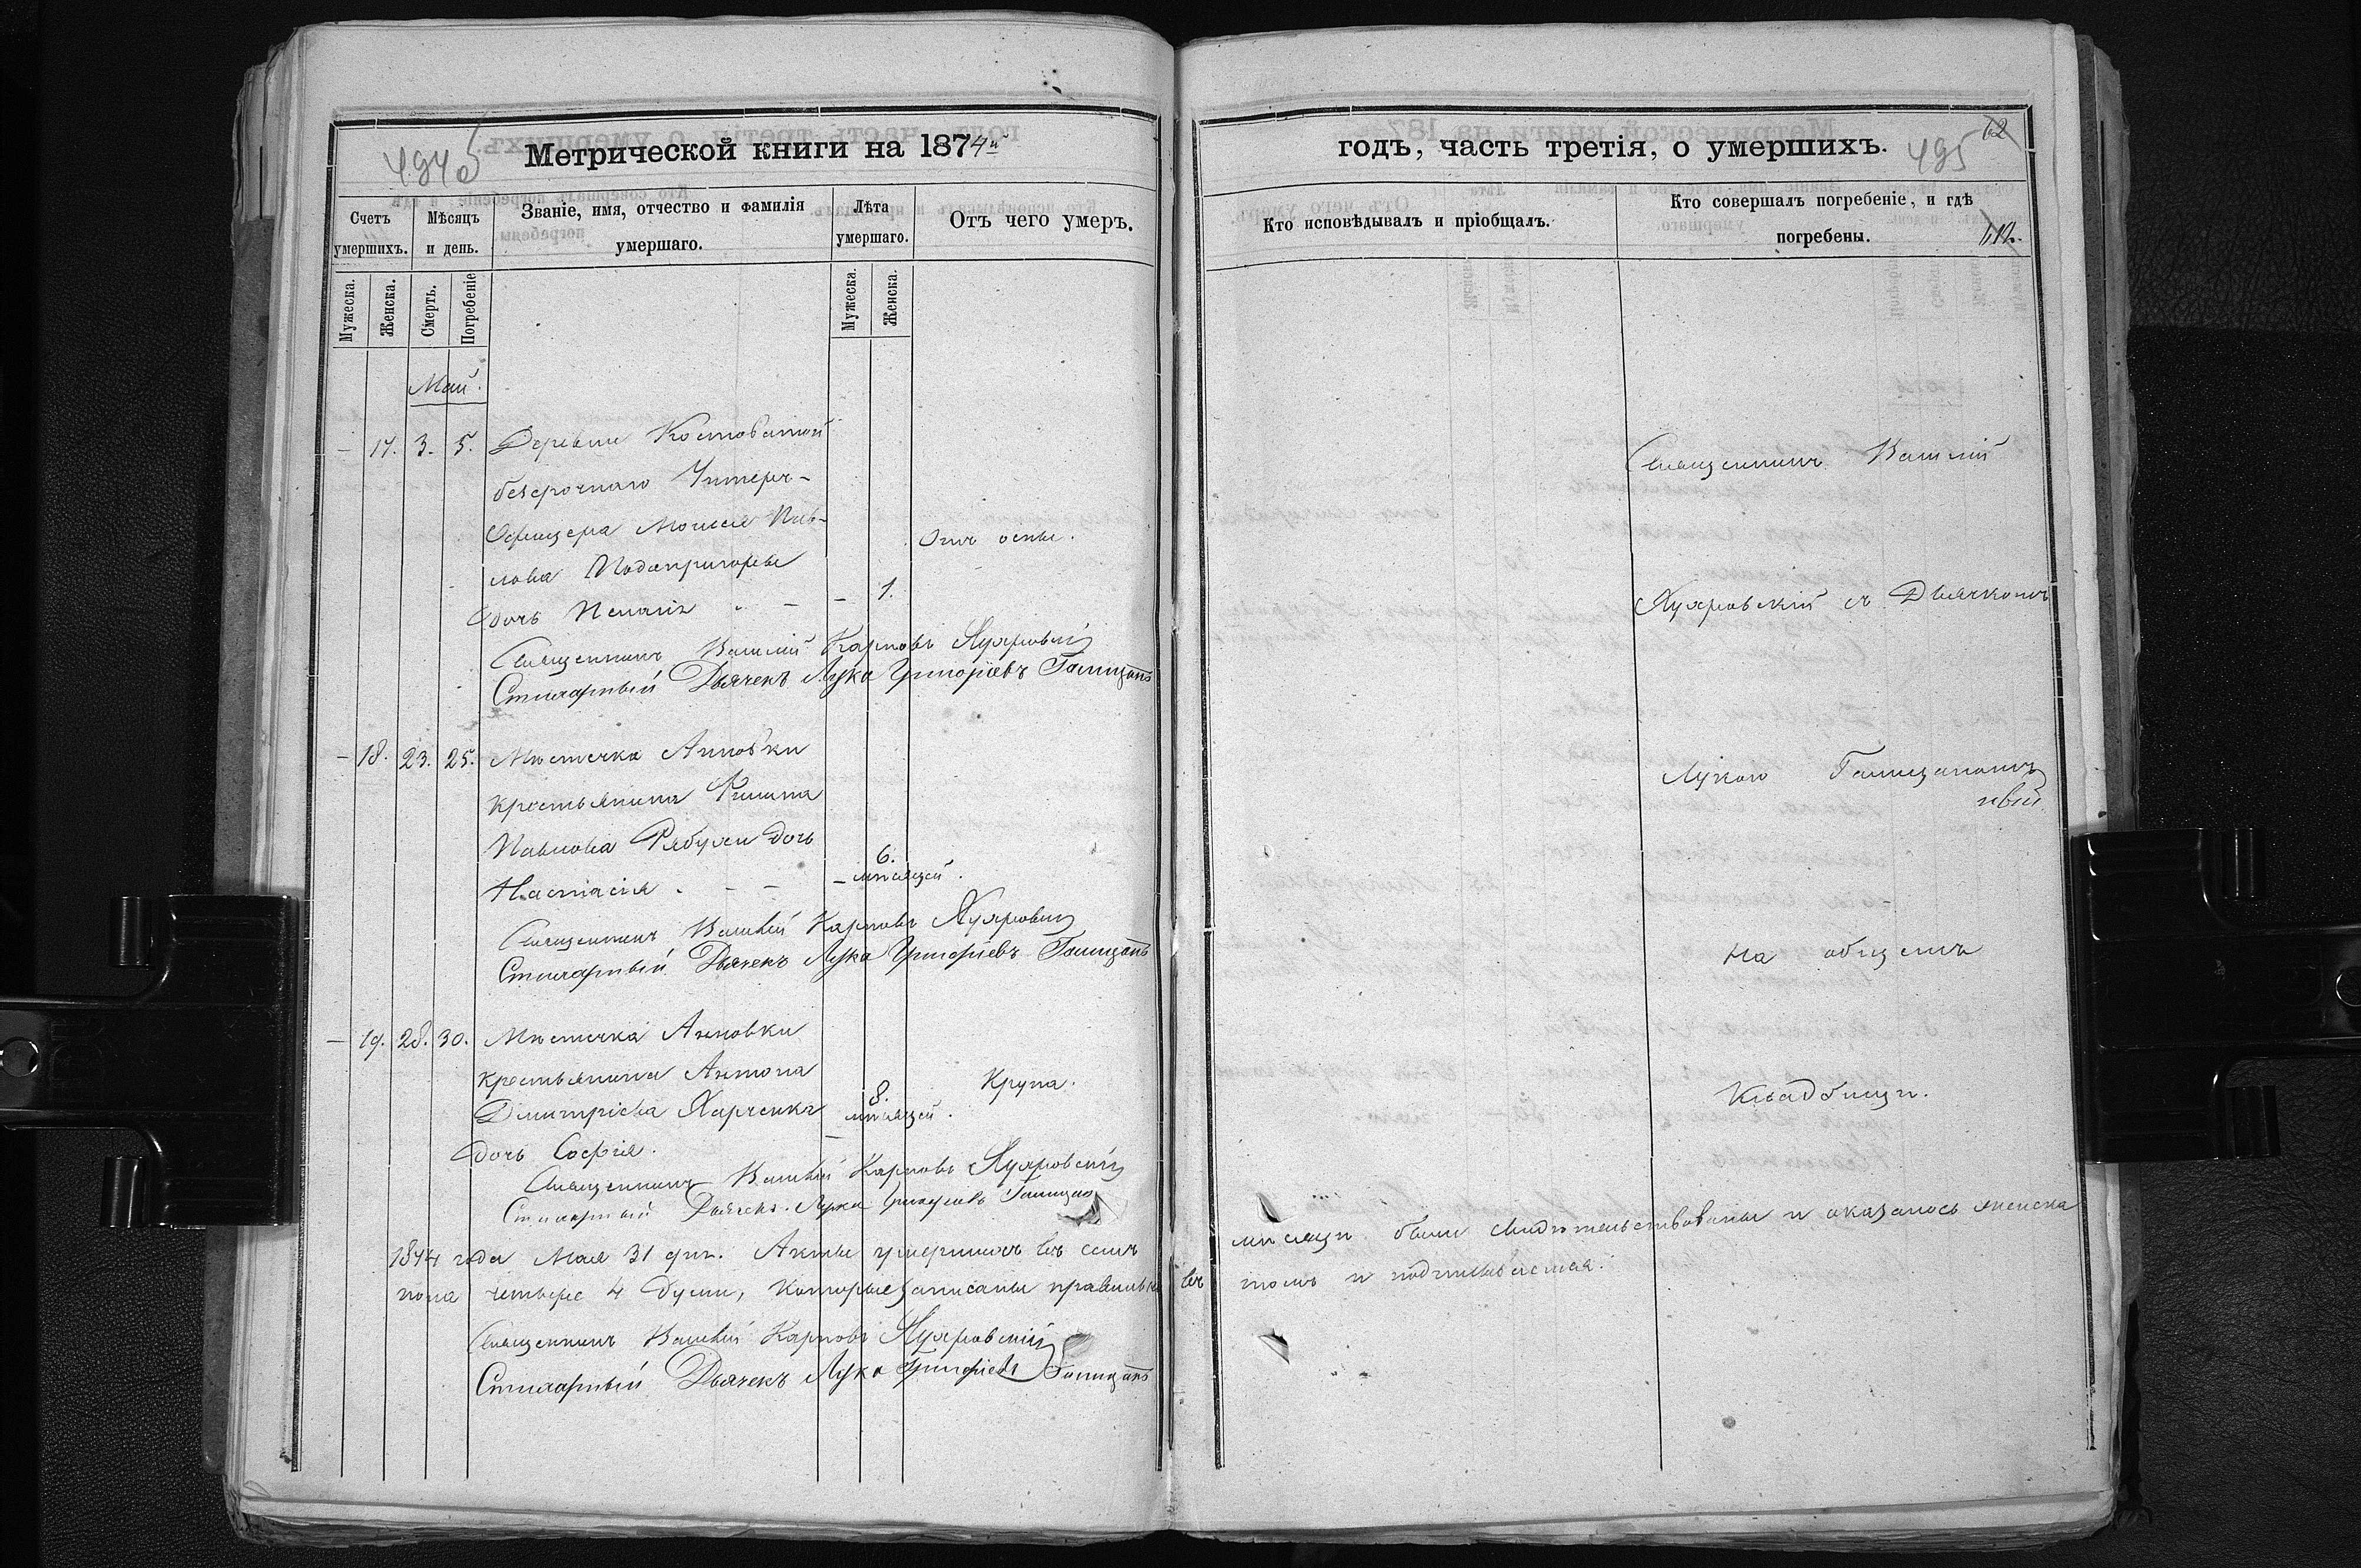 494об
Метрической книги на 1874й
Счетъ умершихъ.
Мѣсяцъ и день.
Званіе, имя, отчество и фамилія умершаго.
Лѣта умершаго.
Отъ чего умеръ.
Мужеска.
Женска.
Смерть.
Погребеніе
Мужеска.
Женска.
Май.
– 17. 3. 5. Деревни Костоватой
безсрочнаго Унтеръ-
Офицера Моисея Пав-
лова Подопригоры
Отъ оспы.
дочь – – 1.
Священникъ Василій Карповъ
Стихарный Дьячекъ Лука Григоріевъ Галицанъ
– 18. 23. 25. Мѣстечка Анновки
крестьянина Филипа
Павлова Рябухи дочь
6.
Настасія – – – мѣсяцей.
Священникъ Василій Карповъ
Стихарный Дьячекъ Лука Григоріевъ Галицанъ
– 19. 28. 30. Мѣстечка Анновки
крестьянина Антона
Крупа.
8.
Димитріева Харченка – мѣсяцей.
дочь Софія.
Священникъ Василій Карповъ
Стихарный Дьячекъ Лука Григоріевъ Галицанъ
1874 года Мая 31 дня. Акты умершихъ въ семъ
пола четыре 4 души, которые записаны правильно въ
Священникъ Василій Карповъ
Стихарный Дьячекъ Лука Григоріевъ Галицанъ
годъ, часть третія, о умершихъ.
495
62
Кто исповѣдывалъ и пріобщалъ.
Кто совершалъ погребеніе, и гдѣ погребены.
Священникъ Василій
съ Дьячкомъ
Лукою Галицаномъ
на общемъ
кладбищѣ.
мѣсяцѣ были свидѣтельствованы и оказалось женска
томъ и подписываемся.